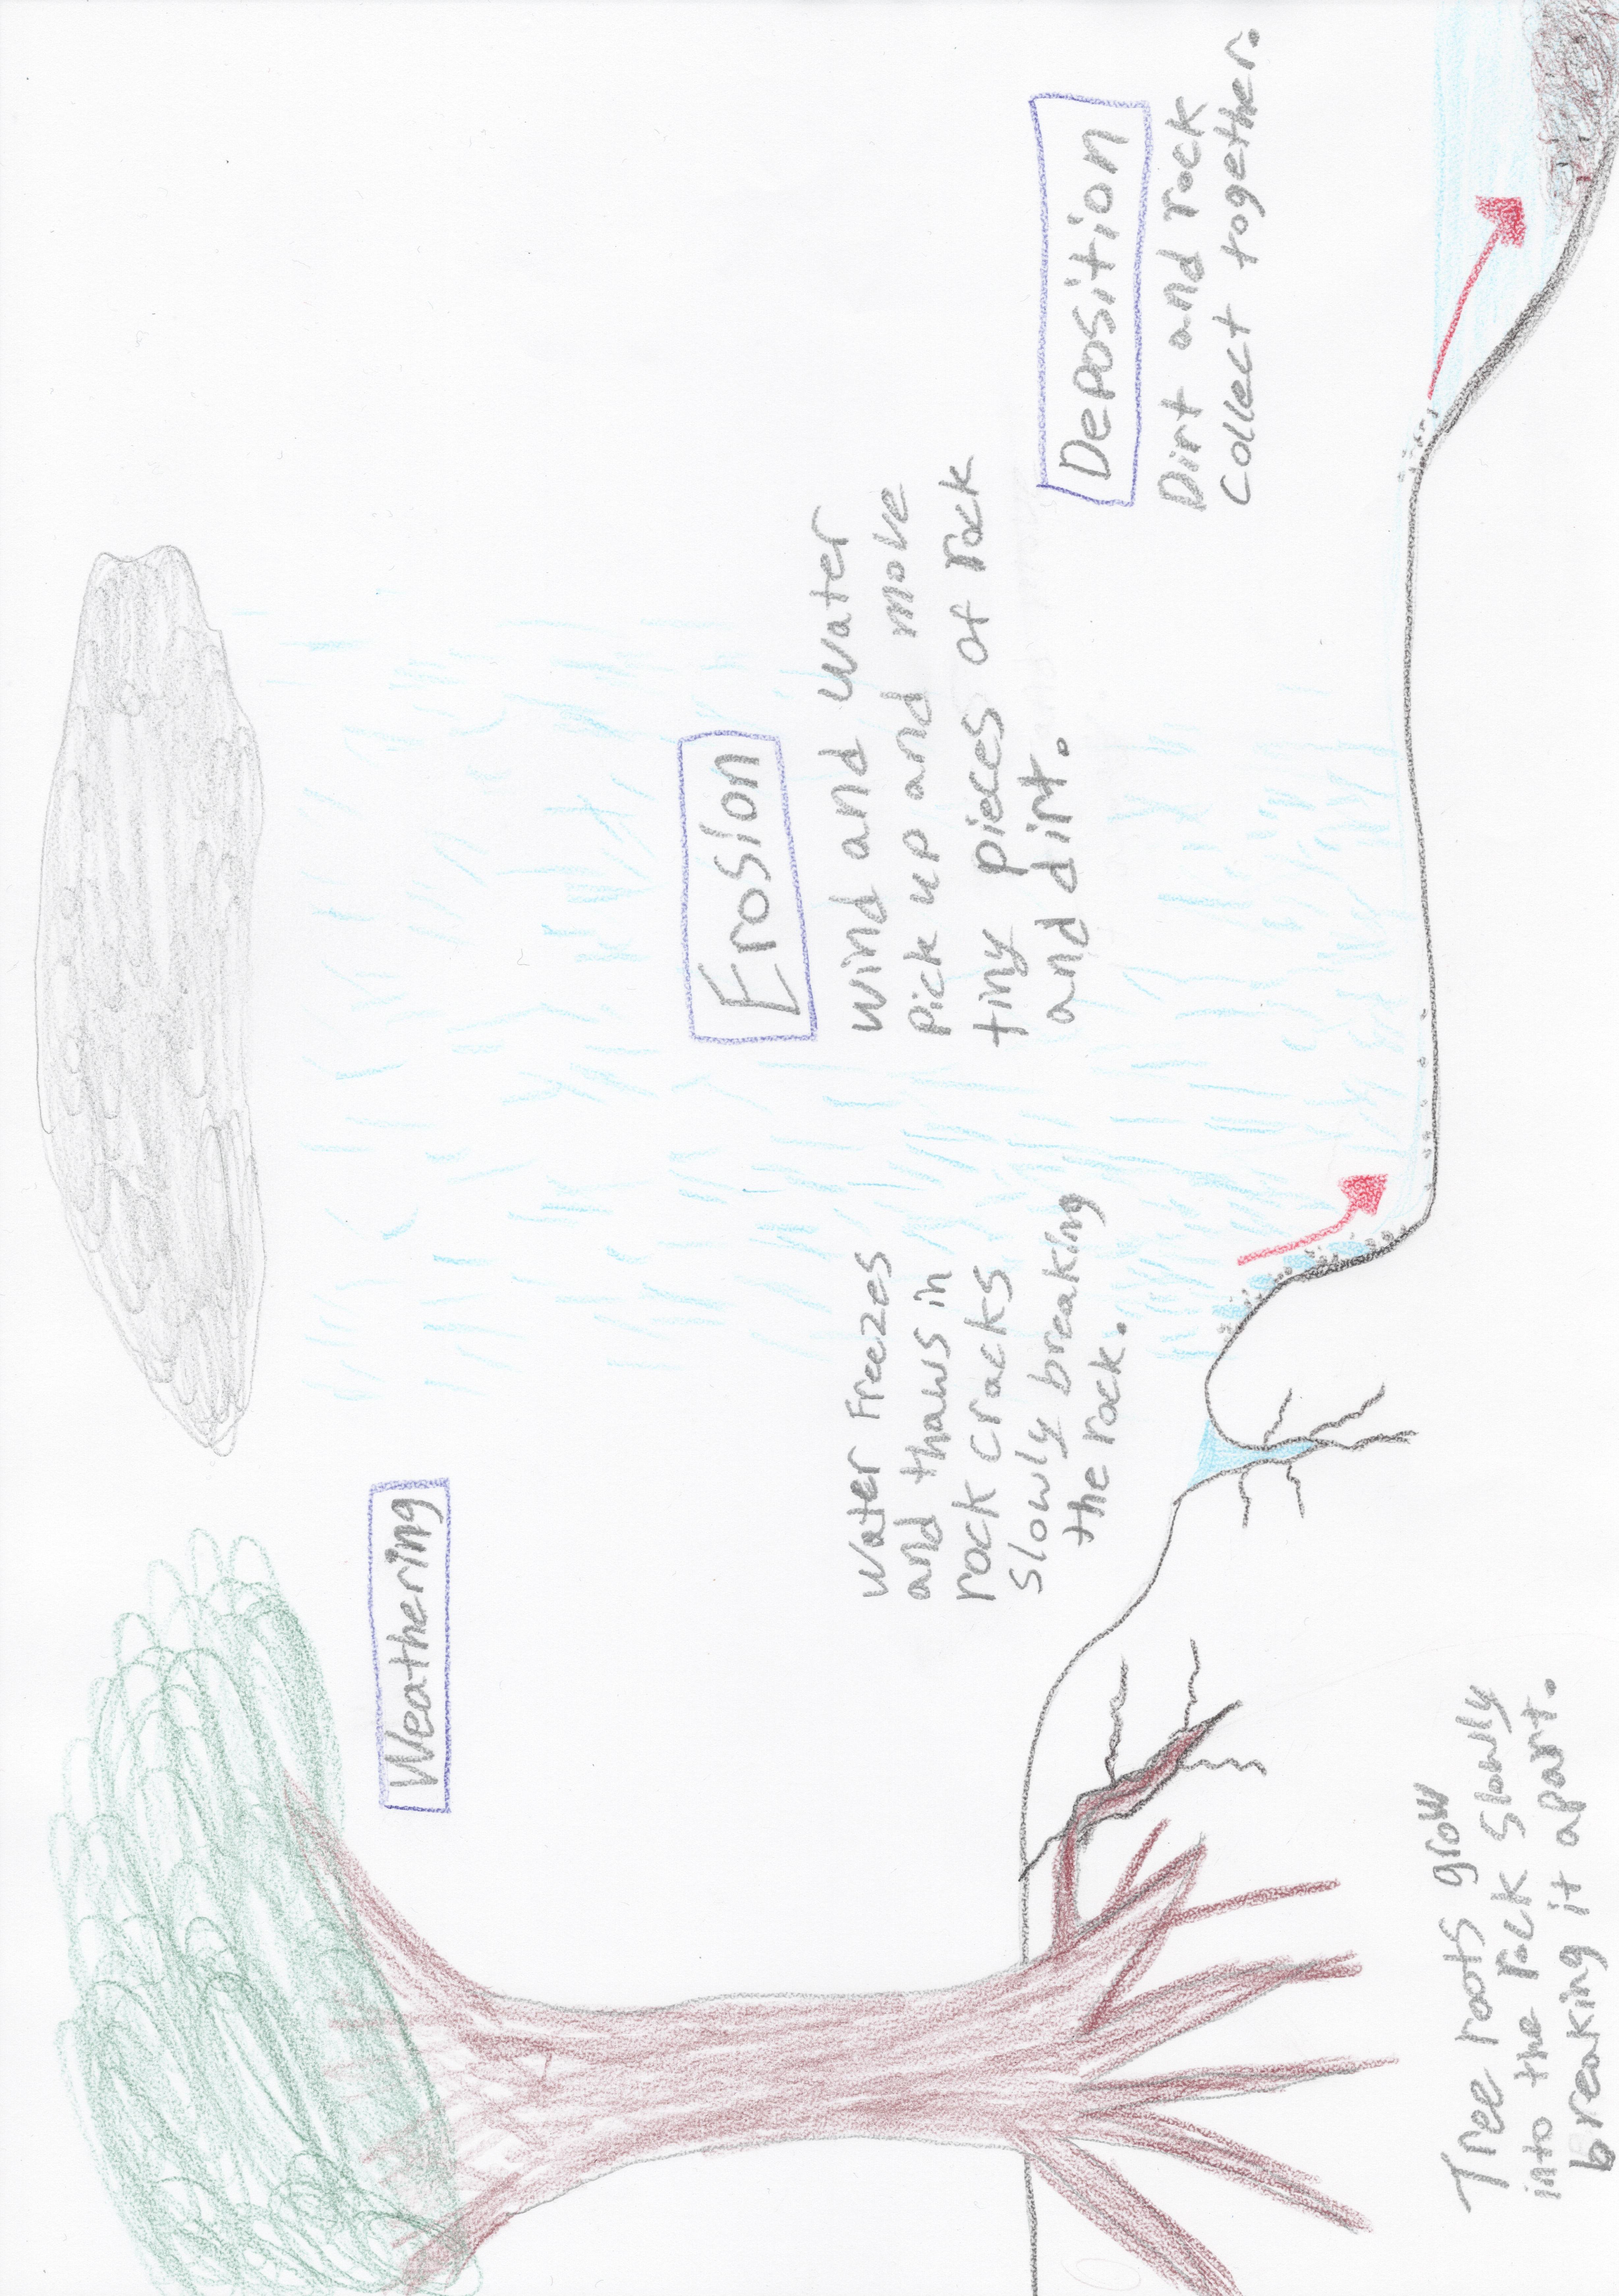 Weathering
Water Freezes
and thaws in
rock cracks
slowly breaking
the rock.
Tree roots grow
into the rock slowly
breaking it apart.
Erosion
Wind and Water
pick up and move
tiny pieces of rock
and dirt.
Deposition
Dirt and rock
collect together.